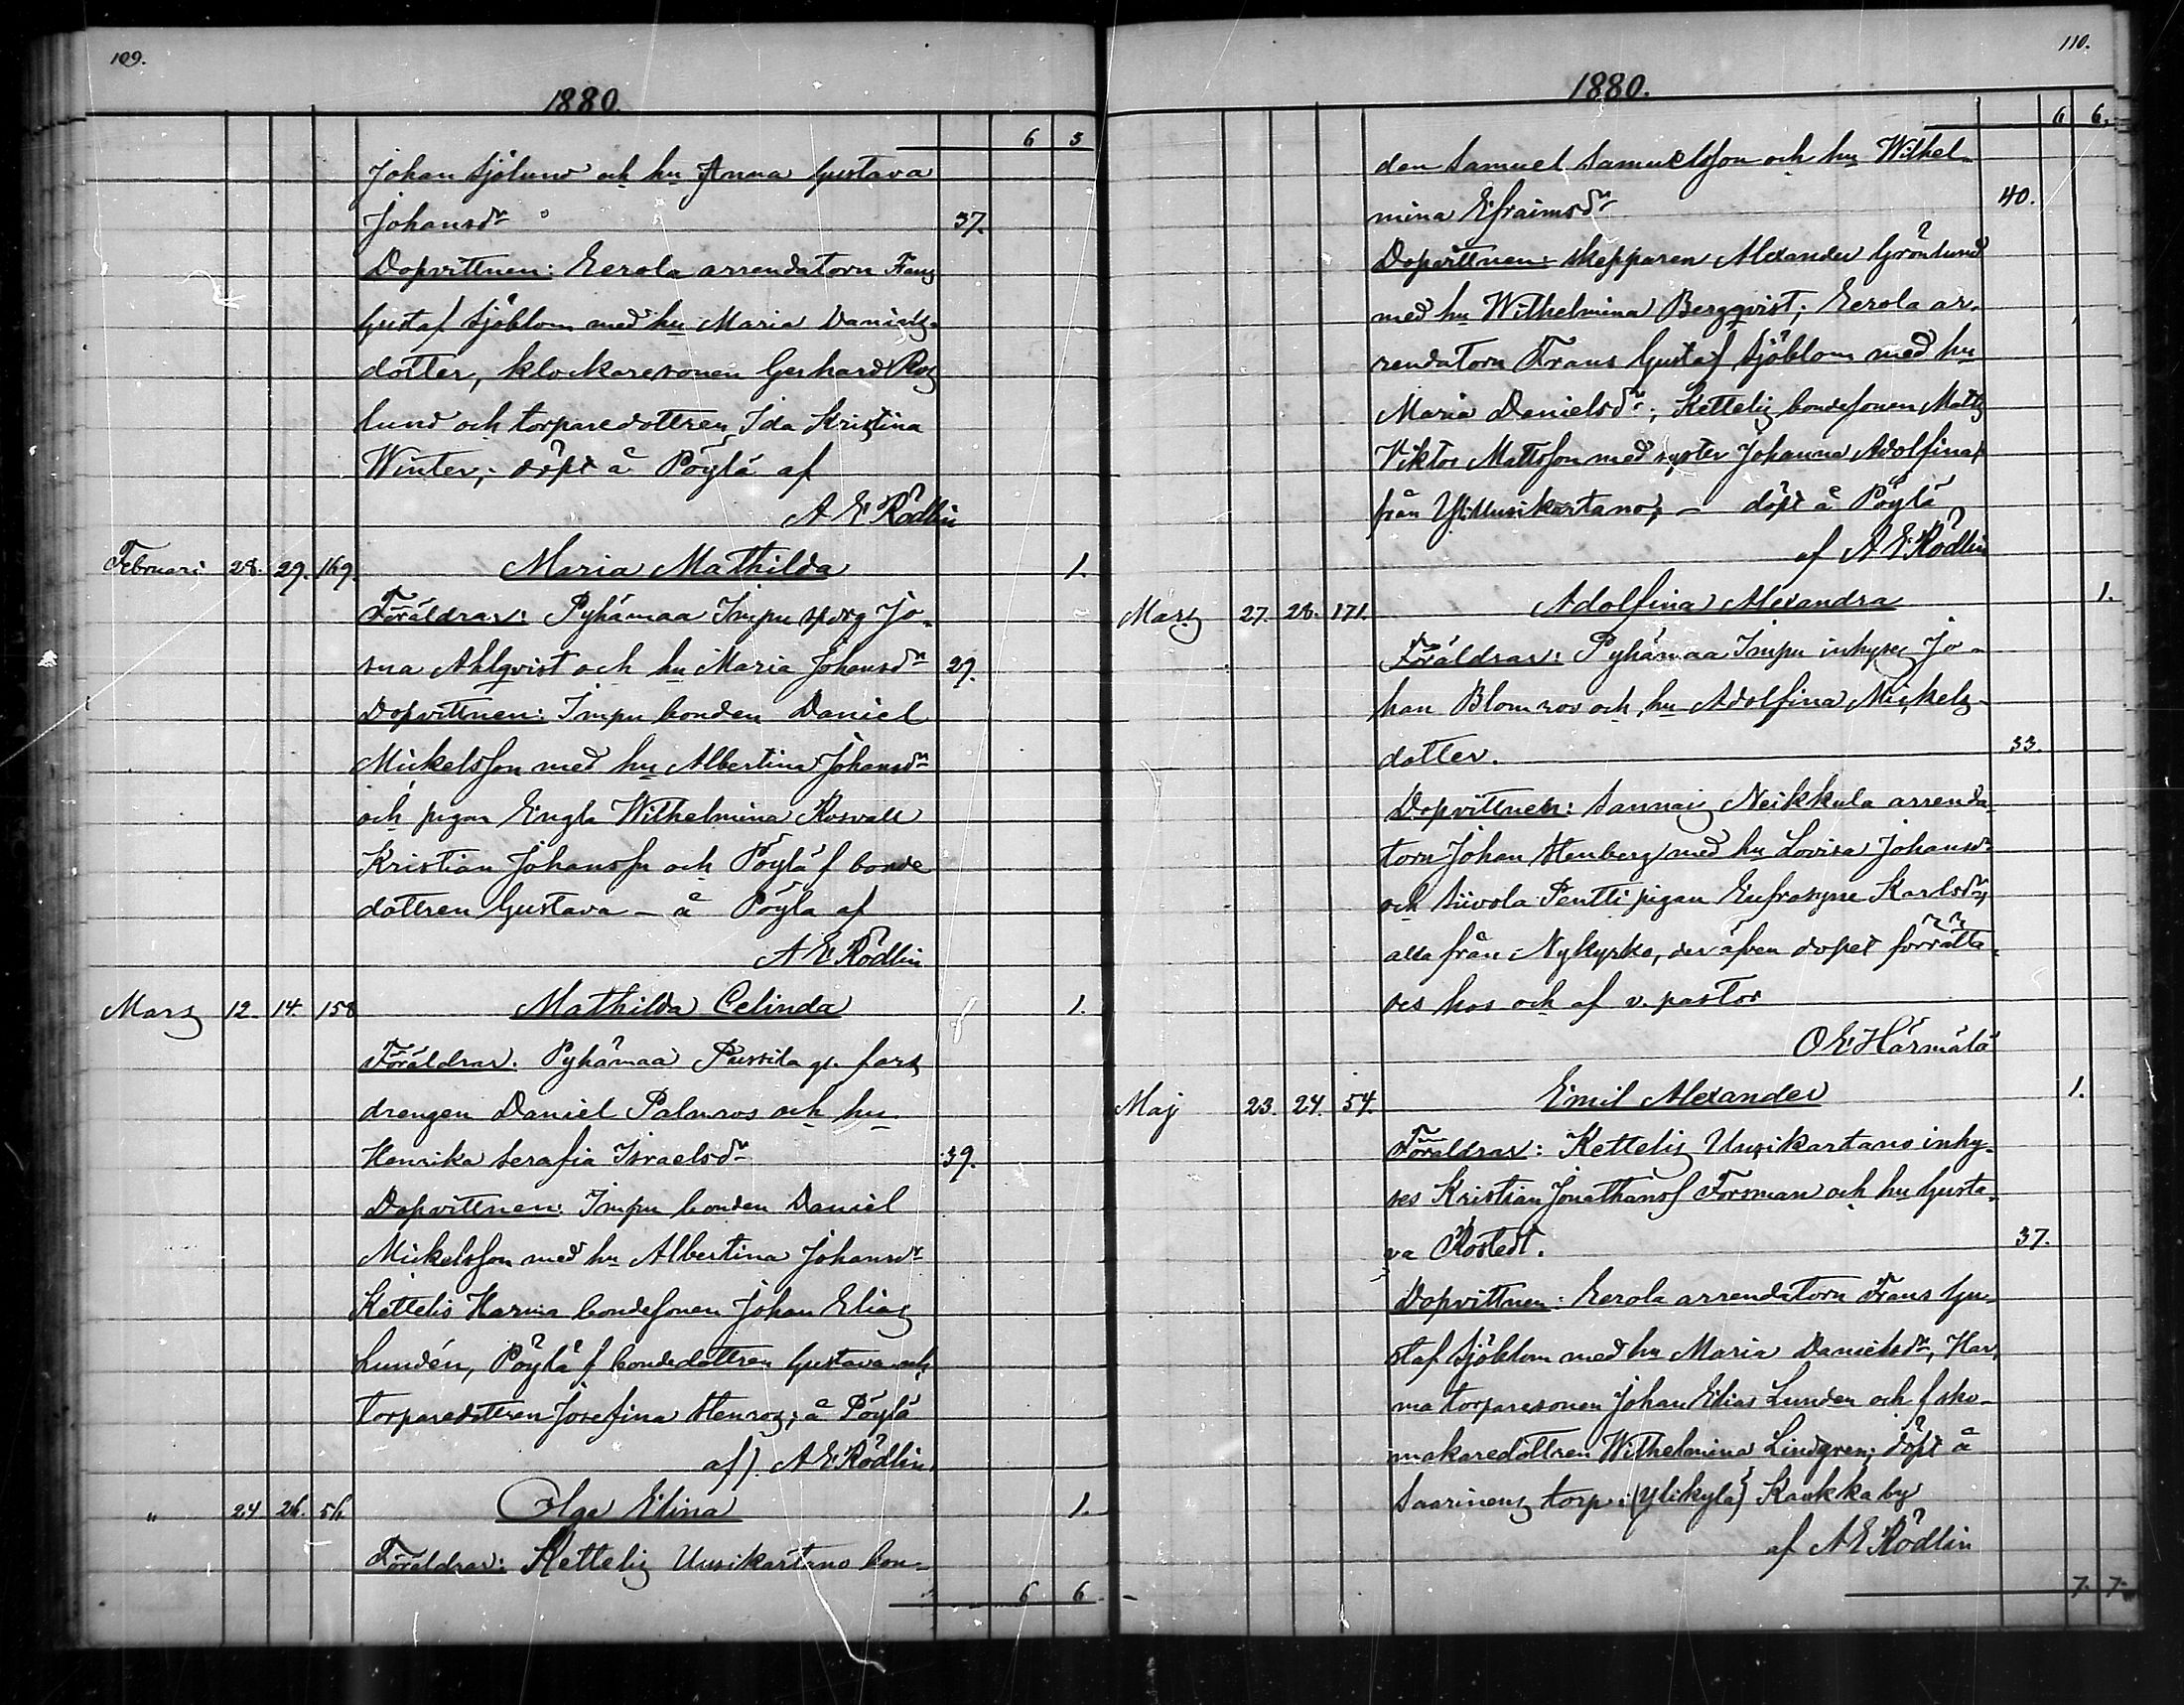 109.
1880.
6 5
Johan Sjölund och hu Anna Gustava
Johansdr 37.
Dopvittnen: Eerola arrendatorn Frans
Gustaf Sjöblom med hu Maria Daniels-
dotter, klockaresonen Gerhard Ros
lund och torparedottren Ida Kristina
Winter; döpt å Pöylä af
A E Rödlin
Februari 28. 29. 169. Maria Mathilda 1.
Föräldrar: Pyhämaa Impu Jo-
sua Ahlqvist och hu Maria Johansdr 29.
Dopvittnen: Impu bonden Daniel
Mickelsson med hu Albertina Johansdr
och pigan Engla Wilhelmina Rosvall
Kristian Johansson och Pöylä f bonde
dottren Gustava - å Pöylä af
A E Rödlin
Mars 12. 14. 158 Mathilda Celinda 1.
Föräldrar: Pyhämaa Pussila
drengen Daniel Palmros och hu
Henrika Serafia Israelsdr 39.
Dopvittnen: Impu bonden Daniel
Mickelsson med hu Albertina Johansdr
Kettelis Harma bondesonen Johan Elias
Lundén, Pöylä f bondedottren Gustava och
torparedottren Josefina Stenros; å Pöylä
af A E Rödlin.
" 24 26. 56. Olga Elina 1.
Föräldrar: Kettelis Uusikartano bon-
6 6.
110.
1880.
6 6.
den Samuel Samuelsson och hu Wilhel-
mina Efraimsdr 40.
Dopvittnen: skepparen Alexander Grönlund
med hu Wilhelmina Bergqvist; Eerola ar-
rendatorn Frans Gustaf Sjöblom med hu
Maria Danielsdr; Kettelis bondesonen Matts
Viktor Mattsson med syster Johanna Adolfina
från Yliuusikartano; - döpt å Pöylä
af A E Rödlin
Mars 27. 28. 171. Adolfina Alexandra 1.
Föräldrar: Pyhämaa Impu inhyses Jo-
han Blomroos och hu Adolfina Mickels-
dotter. 33.
Dopvittnen: Sannais Neikkula arrenda-
torn Johan Stenberg med hu Lovisa Johansdr
och Siivola Pentti pigan Eufrosyne Karlsdr,
alla från Nykyrko, der äfven dopet förrätta-
des hos och af v. pastor
O E Härmälä
Maj 23. 24. 54. Emil Alexander 1.
Föräldrar: Kettelis Uusikartano inhy-
ses Kristian Jonathans Forsman och hu Gusta-
va Rostedt. 37.
Dopvittnen: Eerola arrendatorn Frans Gu-
staf Sjöblom med hu Maria Danielsdr, Har-
ma torparesonen Johan Elias Lunden och f sko-
makaredottren Wilhelmina Lindgren; döpt å
Saarinens torp i (Ylikylä) Kaukka by
af A E Rödlin
7. 7.